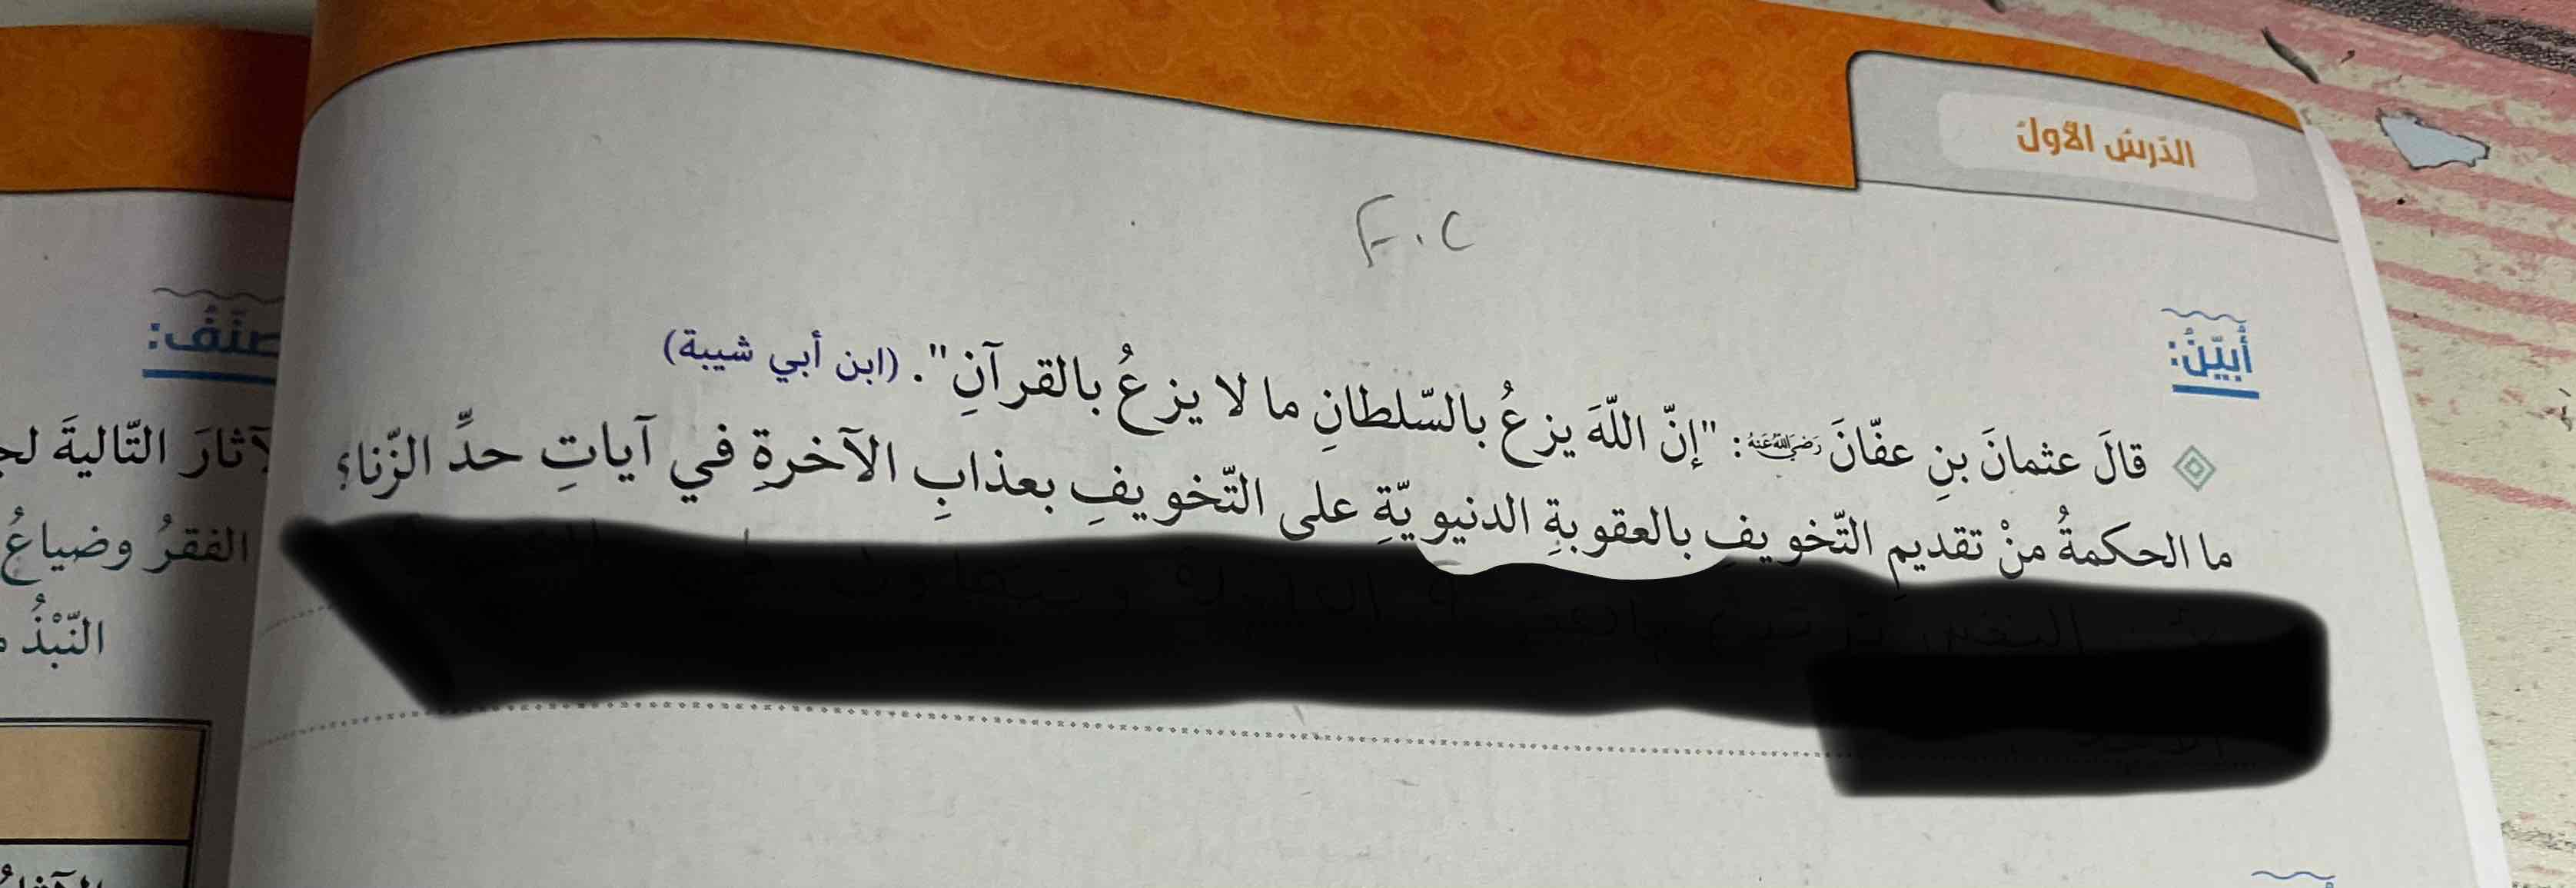 الدّرسُ الأوّلُ
F.C
أُبَيِّنُ:
قالَ عثمانَ بنِ عفّانَ رَضِيَ اللَّهُ عَنْهُ: "إنّ اللّهَ يزعُ بالسّلطانِ ما لا يزعُ بالقرآنِ". (ابن أبي شيبة)
ما الحكمةُ منْ تقديمِ التّخويفِ بالعقوبةِ الدنيويّةِ على التّخويفِ بعذابِ الآخرةِ في آياتِ حدِّ الزّنا؟
صنّفُ:
التّاليةَ
الفقرُ وضياعُ
النّبْذُ